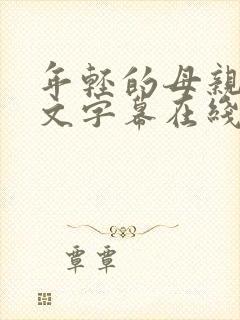 年轻的母亲
文字幕在线
覃覃